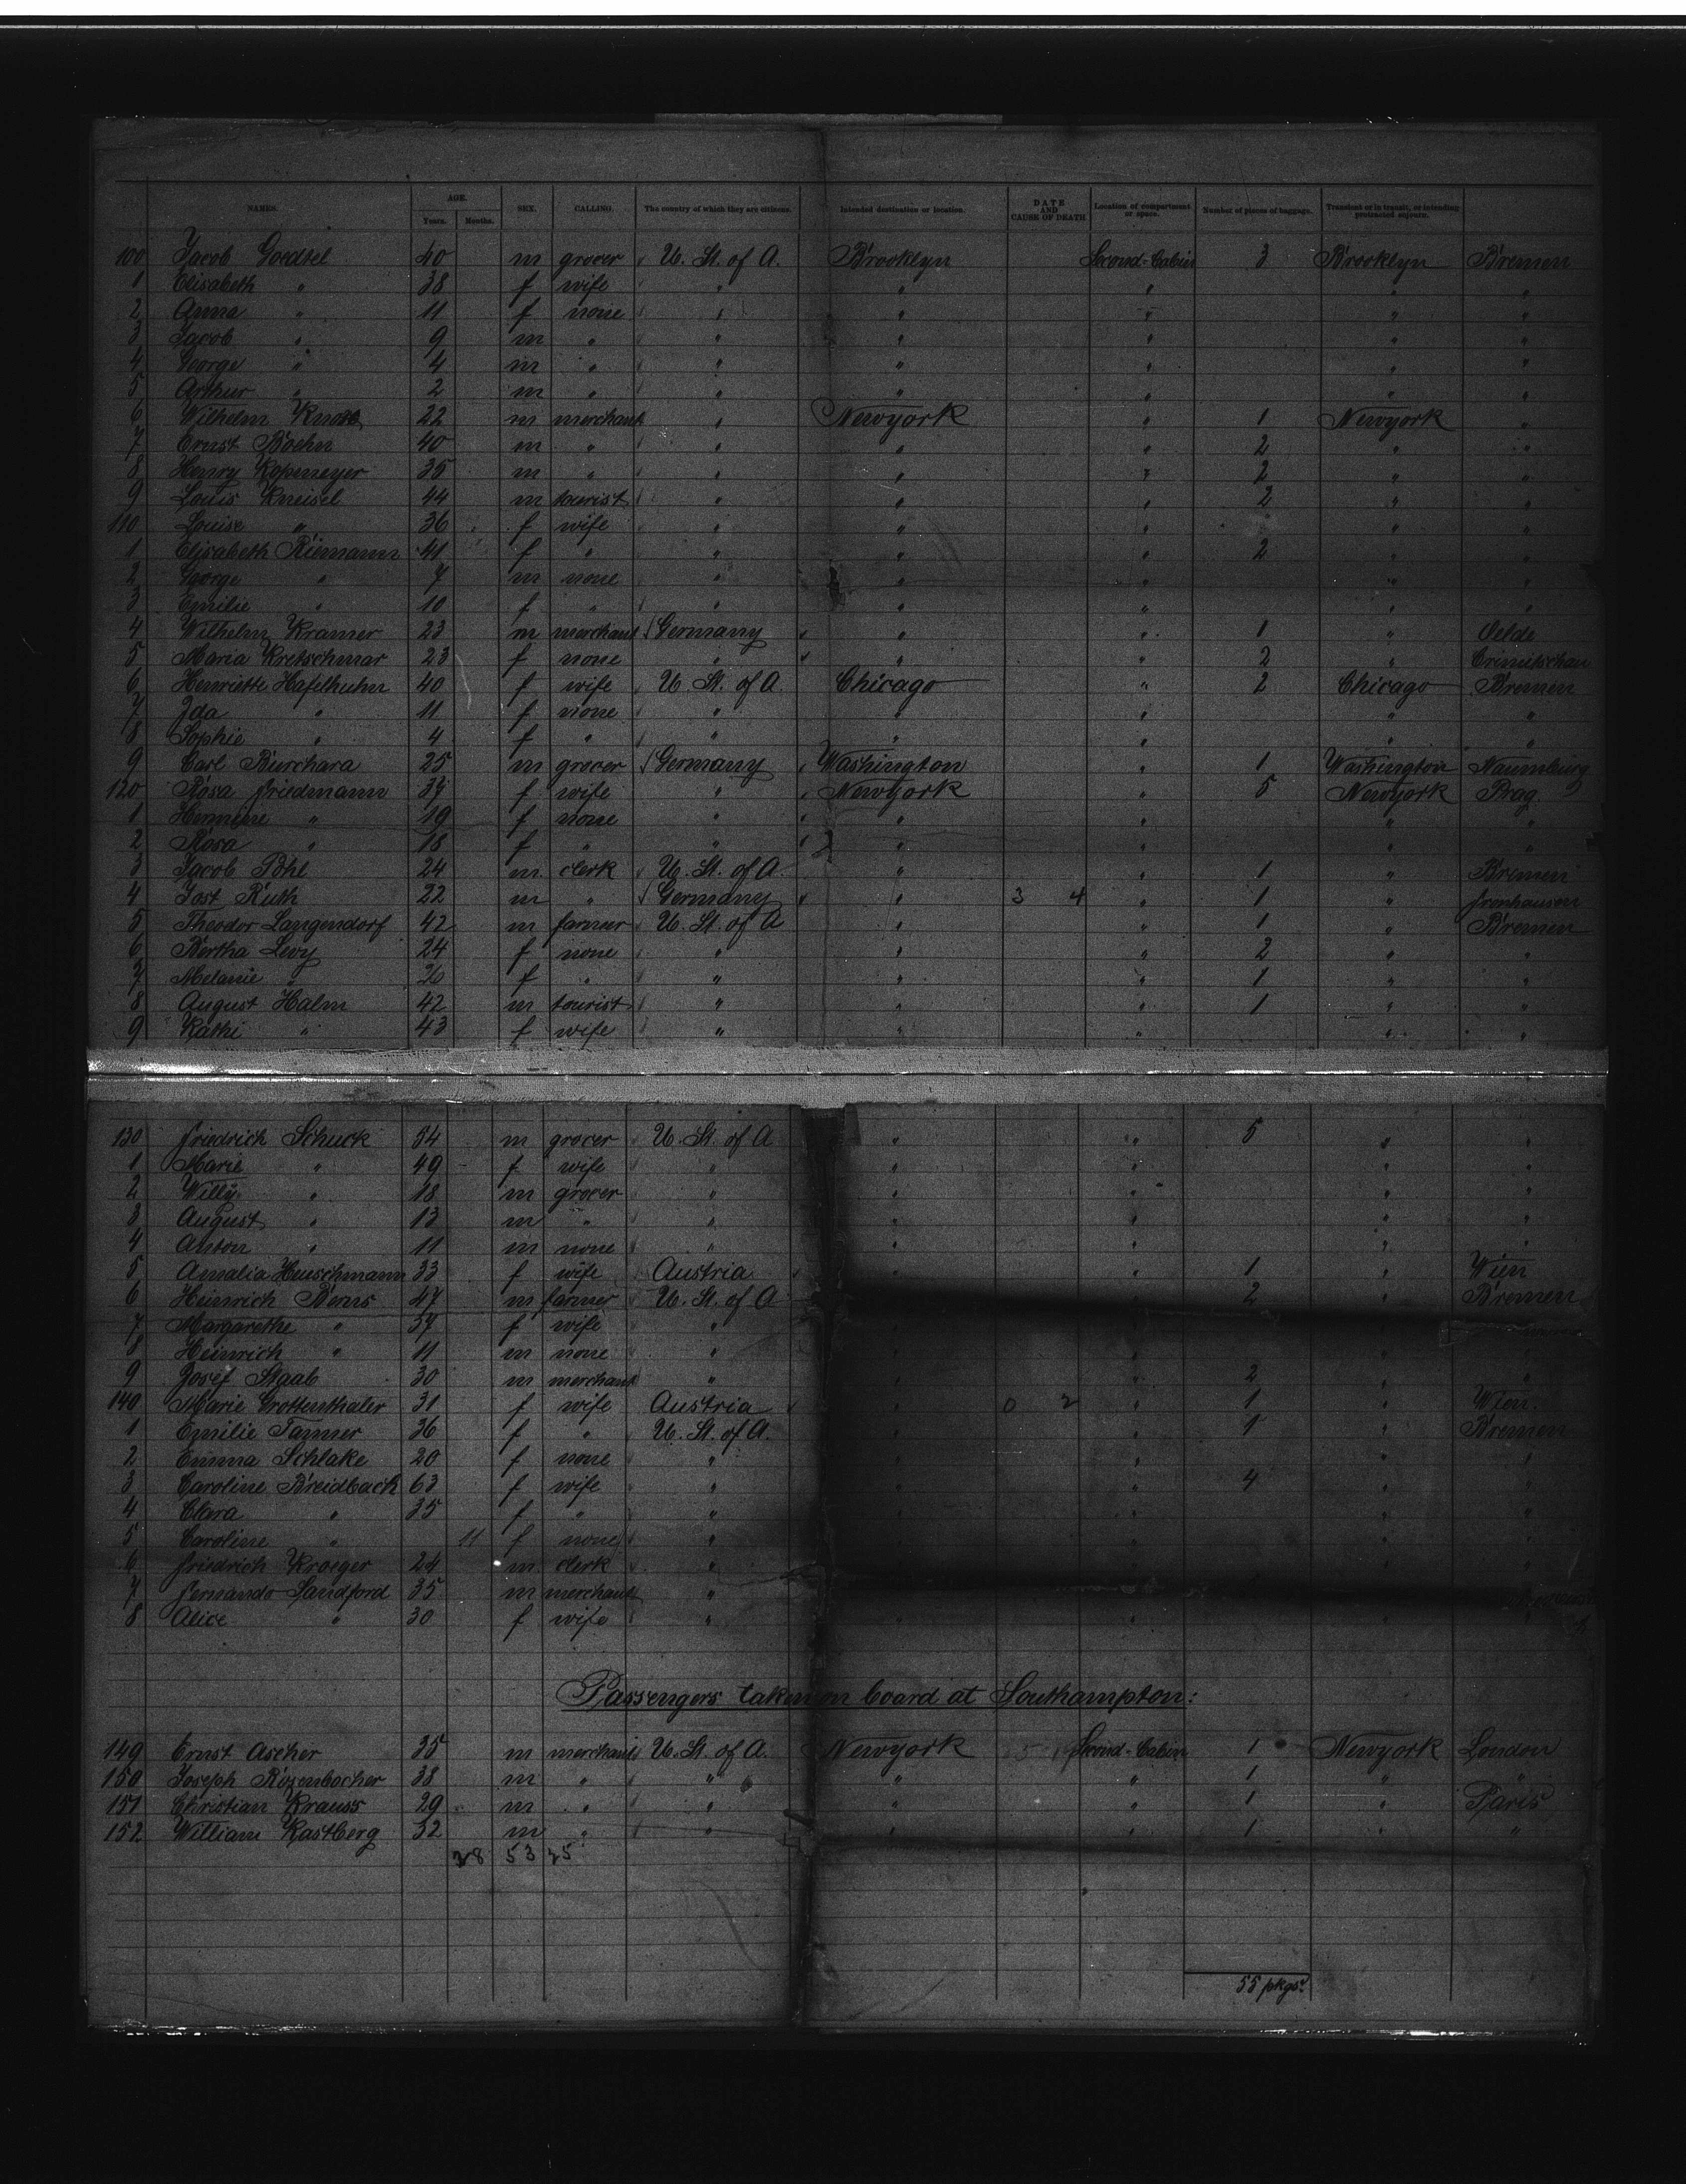 NAMES. AGE. SEX. CALLING. The country of which they are citizens. Intended destination or location. DATE AND CAUSE OF DEATH Location of compartment or space. Number of pieces of baggage. Transient or in transit, or intending protracted sojourn.
Years. Months.
100 Jacob Goedtel 40 m grocer U. St. of A. Brooklyn Second-Cabin 3 Brooklyn Bremen
1 Elisabeth " 38 f wife " " " " "
2 Anna " 11 f none " " " " "
3 Jacob " 9 m " " " " " "
4 George " 4 m " " " " " "
5 Arthur " 2 m " " " " " "
6 Wilhelm 22 m merchant " Newyork " 1 Newyork "
7 Ernst Boehn 40 m " " " " 2 " "
8 Henry Kopmeyer 35 m " " " " 2 " "
9 Louis Kneisel 44 m tourist " " " 2 " "
110 Louise " 36 f wife " " " " "
1 Elisabeth Riemann 41 f " " " " 2 " "
2 George " 7 m none " " " " "
3 Emilie " 10 f " " " " " "
4 Wilhelm Kramer 23 m merchant Germany " " 1 " Oelde
5 Maria Kretschmar 23 f none " " " 2 " Crimitschau
6 Henriette Hafelhuhn 40 f wife U. St. of A. Chicago " 2 Chicago Bremen
7 Ida " 11 f none " " " " "
8 Sophie " 4 f " " " " " "
9 Carl Burchara 25 m grocer Germany Washington " 1 Washington Naumburg
120 Rosa Friedmann 39 f wife " Newyork " 5 Newyork Prag
1 Hermine " 19 f none " " " " "
2 Rosa " 18 f " " " " " "
3 Jacob Pohl 24 m clerk U. St. of A. " " 1 " Bremen
4 Jost Ruth 22 m " Germany " 3 4 " 1 " Fronhausen
5 Theodor Langendorf 42 m farmer U. St. of A " " 1 " Bremen
6 Bertha Levy 24 f none " " " 2 " "
7 Melanie " 20 f " " " " 1 " "
8 August Halm 42 m tourist " " " 1 " "
9 Käthi " 43 f wife " " " " "
130 Friedrich Schuck 54 m grocer U. St. of A " " 5 " "
1 Marie " 49 f wife " " " " "
2 Willy " 18 m grocer " " " " "
3 August " 13 m " " " " " "
4 Anton " 11 m none " " " " "
5 Amalia Heuschmann 33 f wife Austria " 1 " Wien
6 Heinrich Berns 47 m farmer U. St. of A " 2 " Bremen
7 Margarethe " 37 f wife "
8 Heinrich " 11 m none "
9 Josef Staab 30 m merchant " " " 2 " "
140 Marie Grottenthaler 31 f wife Austria " 0 2 " 1 " Wien
1 Emilie Tanner 36 f " U. St. of A. " " 1 " Bremen
2 Emma Schlake 20 f none " " " " "
3 Caroline Breidback 63 f wife " " " 4 " "
4 Clara " 35 f " " " " " "
5 Caroline " 11 f none " " " " "
6 Friedrich Kroeger 24 m clerk " " " " "
7 Fernando Sandford 35 m merchant "
8 Alice " 30 f wife " " " " "
Passengers taken on board at Southampton:
149 Ernst Ascher 35 m merchant U. St. of A. Newyork Second-Cabin 1 Newyork London
150 Joseph Rozenbacher 38 m " " " " 1 " "
151 Christian Krauss 29 m " " " " 1 " Paris
152 William Kastberg 32 m " " " " 1 " "
28 53 25
55 pkgs.